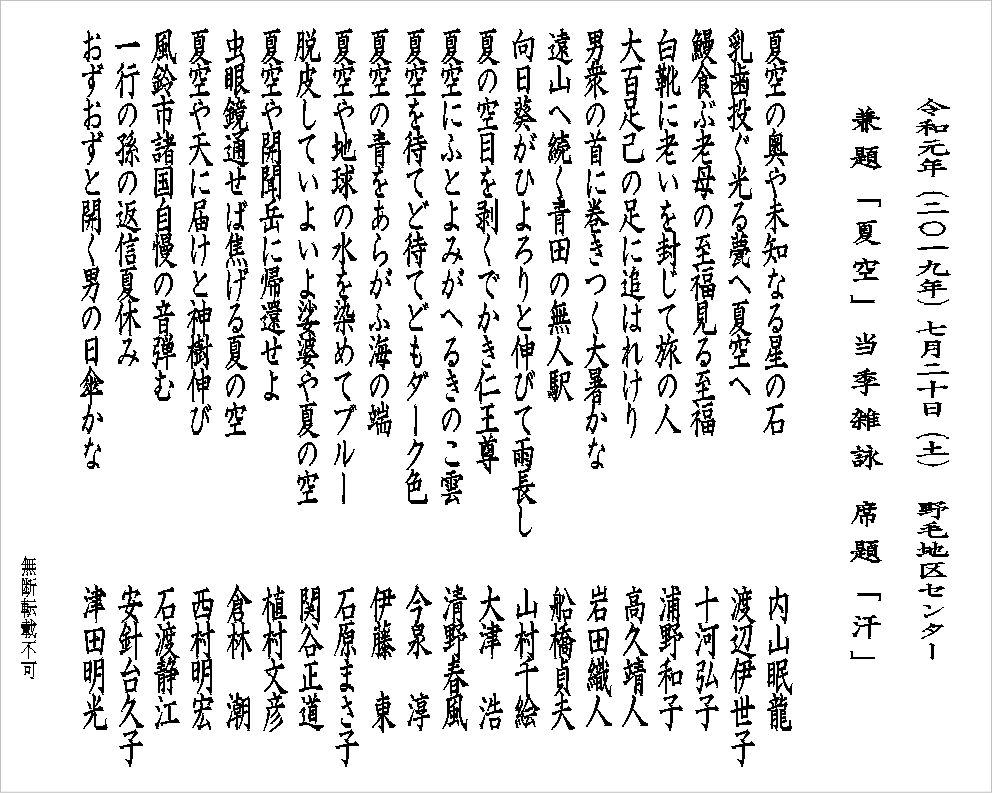 令和元年（二〇一九年）七月二十日（土）　野毛地区センター
兼題「夏空」当季雑詠　席題「汗」
夏空の奥や未知なる星の石　内山眠龍
乳歯投ぐ光る甍へ夏空へ　渡辺伊世子
鰻食ぶ老母の至福見る至福　十河弘子
白靴に老いを封じて旅の人　浦野和子
大百足己の足に追はれけり　高久靖人
男衆の首に巻きつく大暑かな　岩田織人
遠山へ続く青田の無人駅　船橋貞夫
向日葵がひよろりと伸びて雨長し　山村千絵
夏の空目を剥くでかき仁王尊　大津　浩
夏空にふとよみがへるきのこ雲　清野春風
夏空を待てど待てどもダーク色　今泉　淳
夏空の青をあらがふ海の端　伊藤　東
夏空や地球の水を染めてブルー　石原まさ子
脱皮していよいよ娑婆や夏の空　関谷正道
夏空や開聞岳に帰還せよ　植村文彦
虫眼鏡通せば焦げる夏の空　倉林　潮
夏空や天に届けと神樹伸び　西村明宏
風鈴市諸国自慢の音弾む　石渡静江
一行の孫の返信夏休み　安針台久子
おずおずと開く男の日傘かな　津田明光
無断転載不可